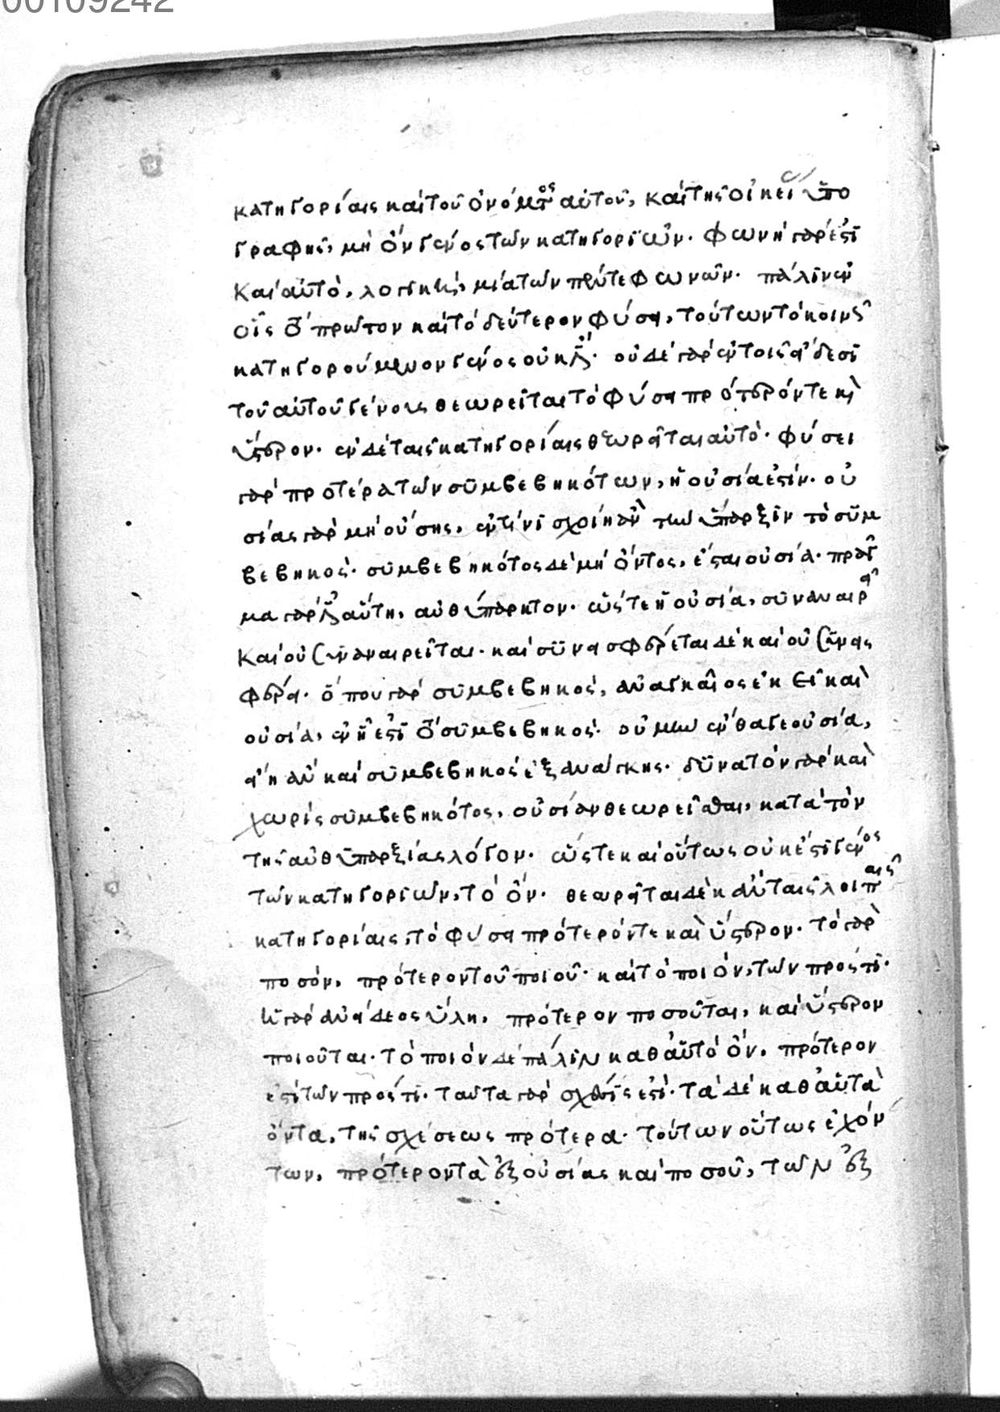 00109242
κατηγορίαις καὶ τοῦ ὀνόματος αὐτοῦ, καὶ τῆς οἰκείας ὑπο
γραφῆς, μὴ ὂν γένος τῶν κατηγοριῶν. φωνὴ γάρ ἐστι
καὶ αὐτὸ, λογικὴ, μία τῶν πέντε φωνῶν. πάλιν ἐν
οἷς τὸ πρῶτον καὶ τὸ δεύτερον φύσει, τούτων τὸ κοινῶς
κατηγορούμενον γένος οὐκ ἔστι. οὐδὲ γὰρ ἐν τοῖς εἴδεσι
τοῦ αὐτοῦ γένους θεωρεῖται τὸ φύσει πρότερόν τε καὶ
ὕστερον. ἐν δὲ ταῖς κατηγορίαις θεωρεῖται αὐτό. φύσει
γὰρ προτέρα τῶν συμβεβηκότων, ἡ οὐσία ἐστίν. οὐ
σίας γὰρ μὴ οὔσης, ἐν τίνι σχοίη ἂν τὴν ὕπαρξιν τὸ συμ
βεβηκός. συμβεβηκότος δὲ μὴ ὄντος, ἔσται οὐσία. πρᾶγ
μα γάρ ἐστιν αὕτη, αὐθύπαρκτον. ὥστε ἡ οὐσία, συναναιρεῖ
καὶ οὐ συναναιρεῖται. καὶ συνεισφέρεται δὲ καὶ οὐ συνεισ
φέρει. ὅπου γὰρ συμβεβηκός, ἀναγκαῖος ἐκεῖ καὶ
οὐσία, ἐν ᾗ ἐστι τὸ συμβεβηκός. οὐ μὴν ἔνθα γε οὐσία,
εἴη ἂν καὶ συμβεβηκὸς ἐξ ἀνάγκης. δυνατὸν γὰρ καὶ
χωρὶς συμβεβηκότος, οὐσίαν θεωρεῖσθαι, κατὰ τὸν
τῆς αὐθυπαρξίας λόγον. ὥστε καὶ οὕτως οὐκ ἔστι γένος
τῶν κατηγοριῶν, τὸ ὄν. θεωρεῖται δὲ κἀν ταῖς λοιπαῖς
κατηγορίαις, τὸ φύσει πρότερόν τε καὶ ὕστερον. τὸ γὰρ
ποσόν, πρότερον τοῦ ποιοῦ. καὶ τὸ ποιόν, τῶν πρός τι.
ἡ γὰρ ἀνείδεος ὕλη, πρότερον ποσοῦται, καὶ ὕστερον
ποιοῦται. τὸ ποιὸν δὲ πάλιν καθ' αὑτὸ ὂν, πρότερον
ἐστὶ τῶν πρός τι. ταῦτα γὰρ σχέσις ἐστί. τὰ δὲ καθ' αὑτὰ
ὄντα, τῆς σχέσεως πρότερα. τούτων οὕτως ἐχόν
των, πρότερον τὰ ἐξ οὐσίας καὶ ποσοῦ, τῶν ἐξ